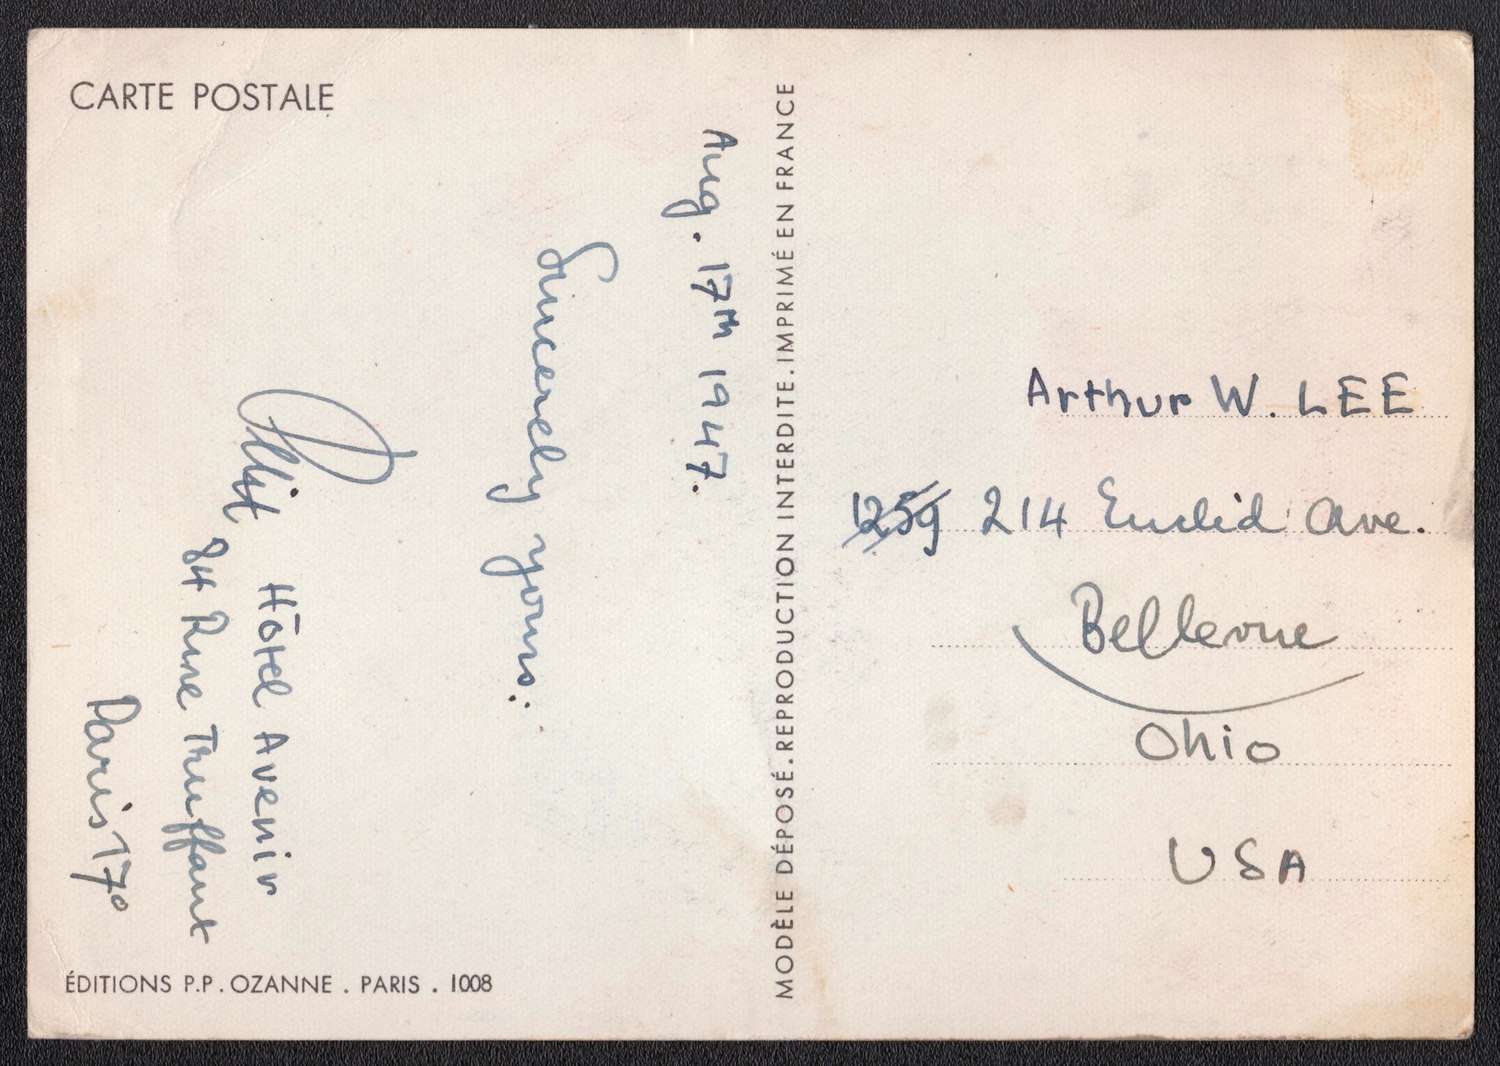 CARTE POSTALE
Aug. 17th 1947.
Sincerely yours:
Hôtel Avenir
84 Rue Truffaut
Paris 17º
ÉDITIONS P.P. OZANNE . PARIS . 1008
MODÈLE DÉPOSÉ. REPRODUCTION INTERDITE. IMPRIMÉ EN FRANCE
Arthur W. LEE
1259 214 Euclid Ave.
Bellevue
Ohio
USA